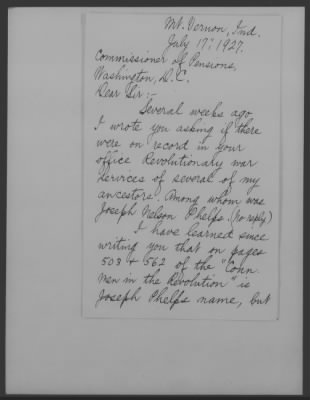 Mt. Vernon, Ind.
July 17th 1927.
Commissioner of Pensions,
Washington, D.C.
Dear Sir:-
Several weeks ago
I wrote you asking if there
were on record in your
office Revolutionary war
services of several of my
ancestors. Among whom was
Joseph Nelson Phelps. (No reply)
I have learned since
writing you that on pages
503 & 562 of the "Conn.
Men in the Revolution" is
Joseph Phelps name, but